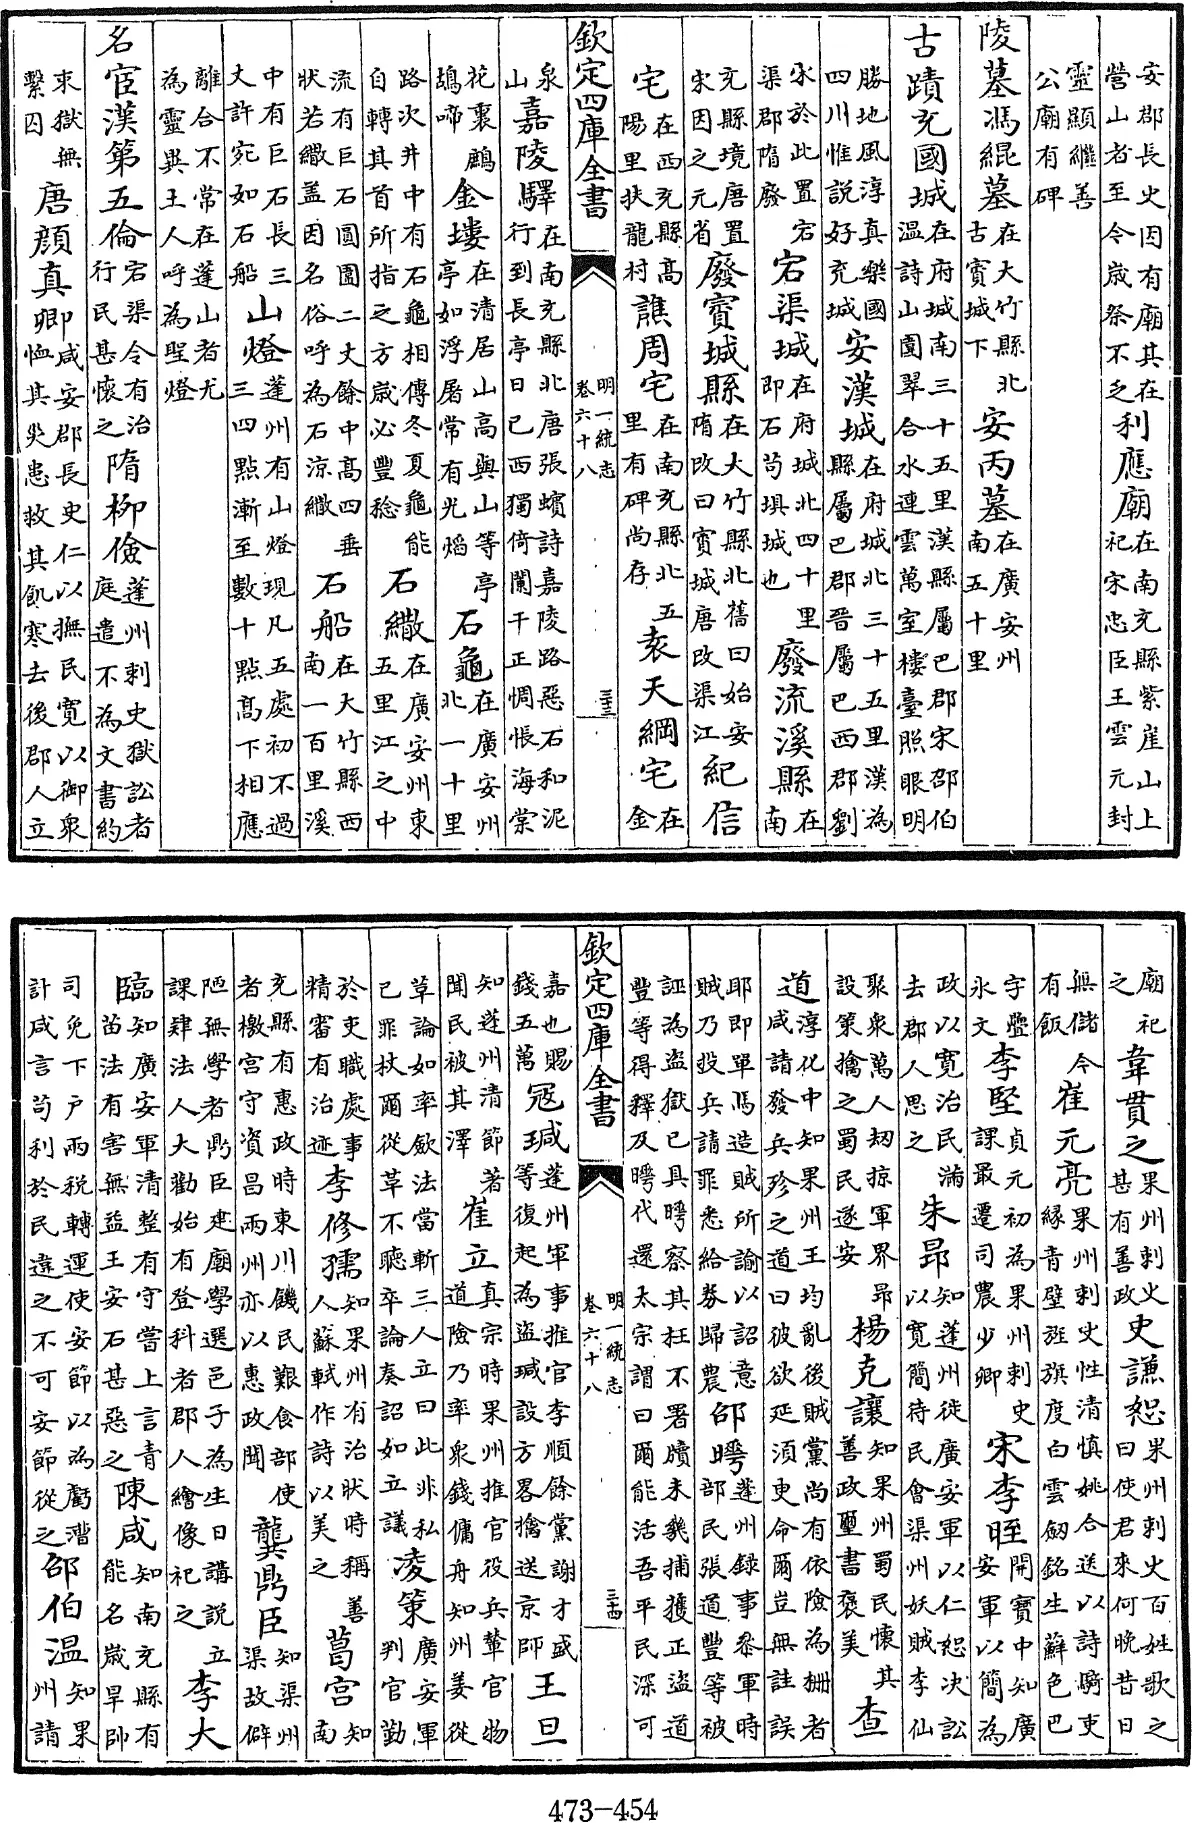 安郡長史因有廟其在營山者至今歲祭不乏利應廟在南充縣紫崖山上祀宋忠臣王雲元封
靈顯繼善公廟有碑
陵墓馮緄墓在大竹縣北古賨城下安丙墓在廣安州南五十里
古蹟充國城在府城南三十五里漢縣屬巴郡宋邵伯溫詩山圍翠合水連雲萬室樓臺照眼明
勝地風淳真樂國四川惟說好充城安漢城在府城北三十五里漢為縣屬巴郡晉屬巴西郡劉
宋於此置宕渠郡隋廢宕渠城在府城北四十里即石苟壩城也廢流溪縣在南
充縣境唐置宋因之元省廢賨城縣在大竹縣北舊曰始安隋改曰賨城唐改渠江紀信
宅在西充縣高陽里扶龍村譙周宅在南充縣北五里有碑尚存袁天綱宅在金
欽定四庫全書 明一統志卷六十八 三十三
泉山嘉陵驛在南充縣北唐張蠙詩嘉陵路惡石和泥行到長亭日已西獨倚闌干正惆悵海棠
花裏鷓鴣啼金塿在清居山高與山等亭亭如浮屠常有光熖石龜在廣安州北一十里
路次井中有石龜相傳冬夏龜能自轉其首所指之方歲必豐稔石繖在廣安州東五里江之中
流有巨石圓圍二丈餘中高四垂狀若繖盖因名俗呼為石涼繖石船在大竹縣西南一百里溪
中有巨石長三丈許宛如石船山燈蓬州有山燈現凡五處初不過三四點漸至數十點髙下相應
離合不常在蓬山者尤為靈異土人呼為聖燈
名宦漢第五倫宕渠令有治行民甚懷之隋柳儉蓬州刺史獄訟者庭遣不為文書約
束獄無繫囚唐顔真卿咸安郡長史仁以撫民寛以御衆恤其災患救其飢寒去後郡人立
廟祀之韋貫之果州刺史甚有善政史謙恕果州刺史百姓歌之曰使君來何晚昔日
無儲今有飯崔元亮果州刺史性清慎姚合送以詩騎吏緣青壁旌旗度白雲劒銘生蘚色巴
字疊永文李堅貞元初為果州刺史課最遷司農少卿宋李晊開寶中知廣安軍以簡為
政以寛治民滿去郡人思之朱昂知蓬州徙廣安軍以仁恕决訟以寛簡待民會渠州妖賊李仙
聚衆萬人刼掠軍界昻設策擒之蜀民遂安楊克讓知果州蜀民懷其善政璽書褒美查
道淳化中知果州王均亂後賊黨尚有依險為栅者咸請發兵殄之道曰彼欲延須臾命爾豈無詿誤
耶即單馬造賊所諭以詔意賊乃投兵請罪悉給劵歸農邵曄蓬州録事叅軍時部民張道豐等被
誣為盜獄已具曄察其枉不署牘未幾捕獲正盜道豐等得釋及曄代還太宗謂曰爾能活吾平民深可
欽定四庫全書 明一統志卷六十八 三十四
嘉也賜錢五萬冦瑊蓬州軍事推官李順餘黨謝才盛等復起為盜瑊設方畧擒送京師王旦
知蓬州清節著聞民被其澤崔立真宗時果州推官役兵輦官物道險乃率衆錢傭舟知州姜從
草論如率斂法當斬三人立曰此非私已罪杖爾從革不聽卒論奏詔如立議凌策廣安軍判官勤
於吏職處事精審有治迹李修孺知果州有治狀時稱善人蘇軾作詩以美之葛宮知南
充縣有惠政時東川饑民艱食部使者檄宮守資昌兩州亦以惠政聞龔鼎臣知渠州渠故僻
陋無學者鼎臣建廟學選邑子為生日講說立課肄法人大勸始有登科者郡人繪像祀之李大
臨知廣安軍清整有守當上言青苗法有害無益王安石甚惡之陳咸知南充縣有能名歲旱帥
司免下户兩稅轉運使安節以為虧漕計咸言苟利於民違之不可安節從之邵伯溫知果州請
473-454